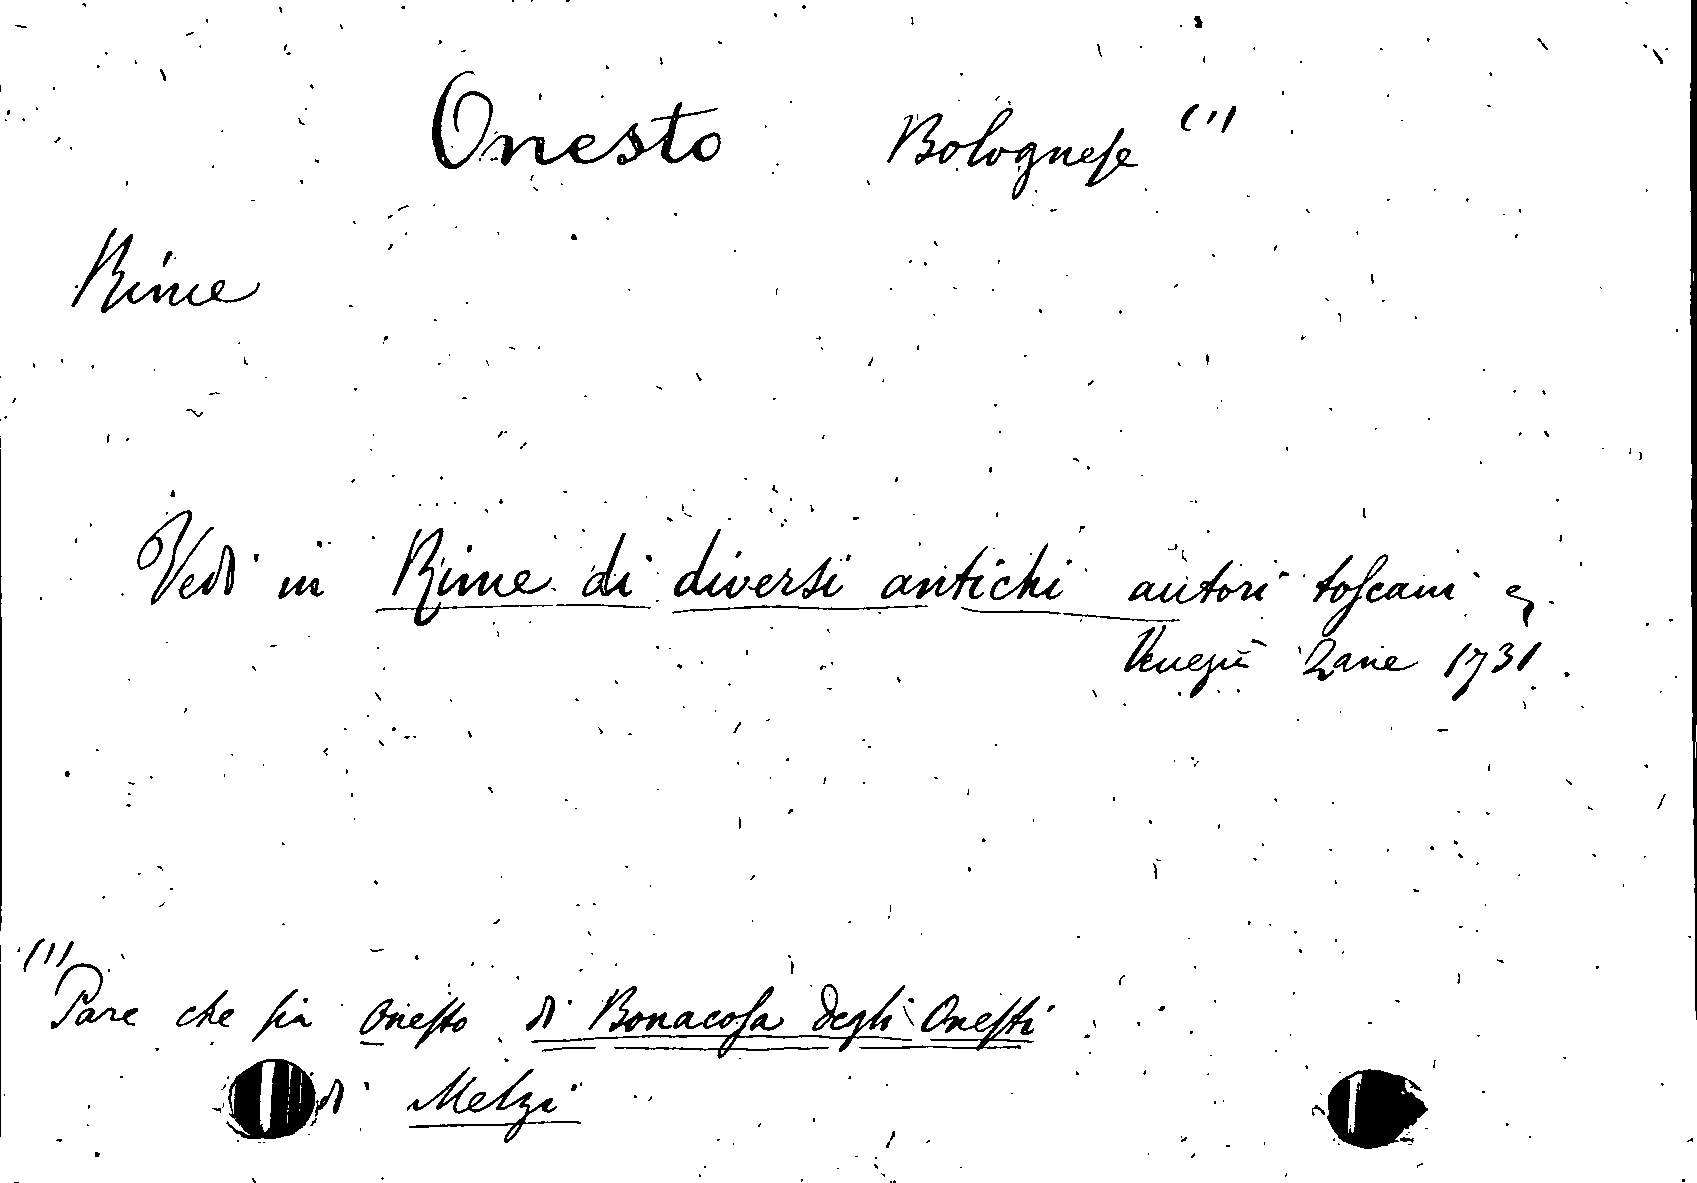 Onesto Bolognese (1)
Rime
Vedi in Rime di diversi antichi autori toscani
Venezia Zane 1731.
(1) Pare che sia Onesto di Bonacosa degli Onesti
di Melzi